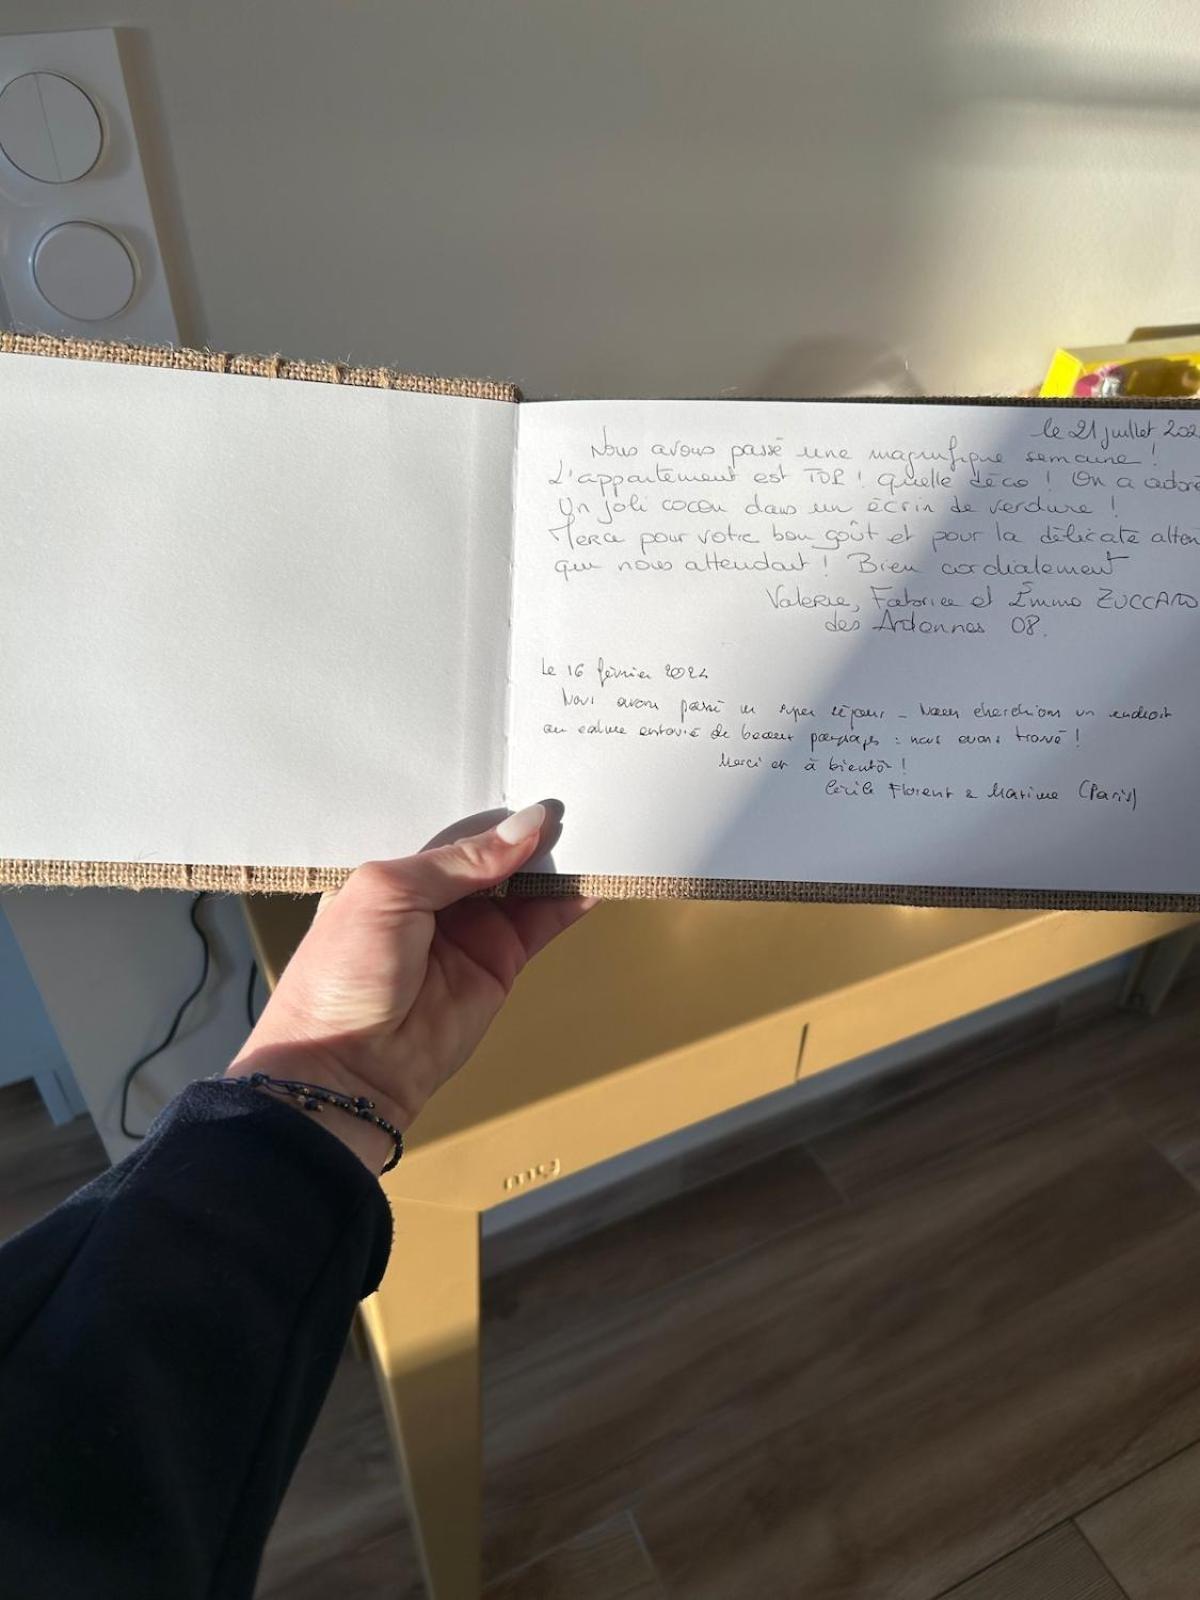 le 21 juillet 202
Nous avons passé une magnifique semaine !
L'appartement est TOP ! Quelle déco ! On a adoré
Un joli cocon dans un écrin de verdure !
Merci pour votre bon goût et pour la délicate atten
qui nous attendait ! Bien cordialement
Valérie, Fabrice et Emma ZUCCARO
des Ardennes 08.
Le 16 février 2024
Nous avons passé un super séjour - Nous cherchions un endroit
au calme entouré de beaux paysages : nous avons trouvé !
Merci et à bientôt !
Cécile Florent & Maxime (Paris)
my